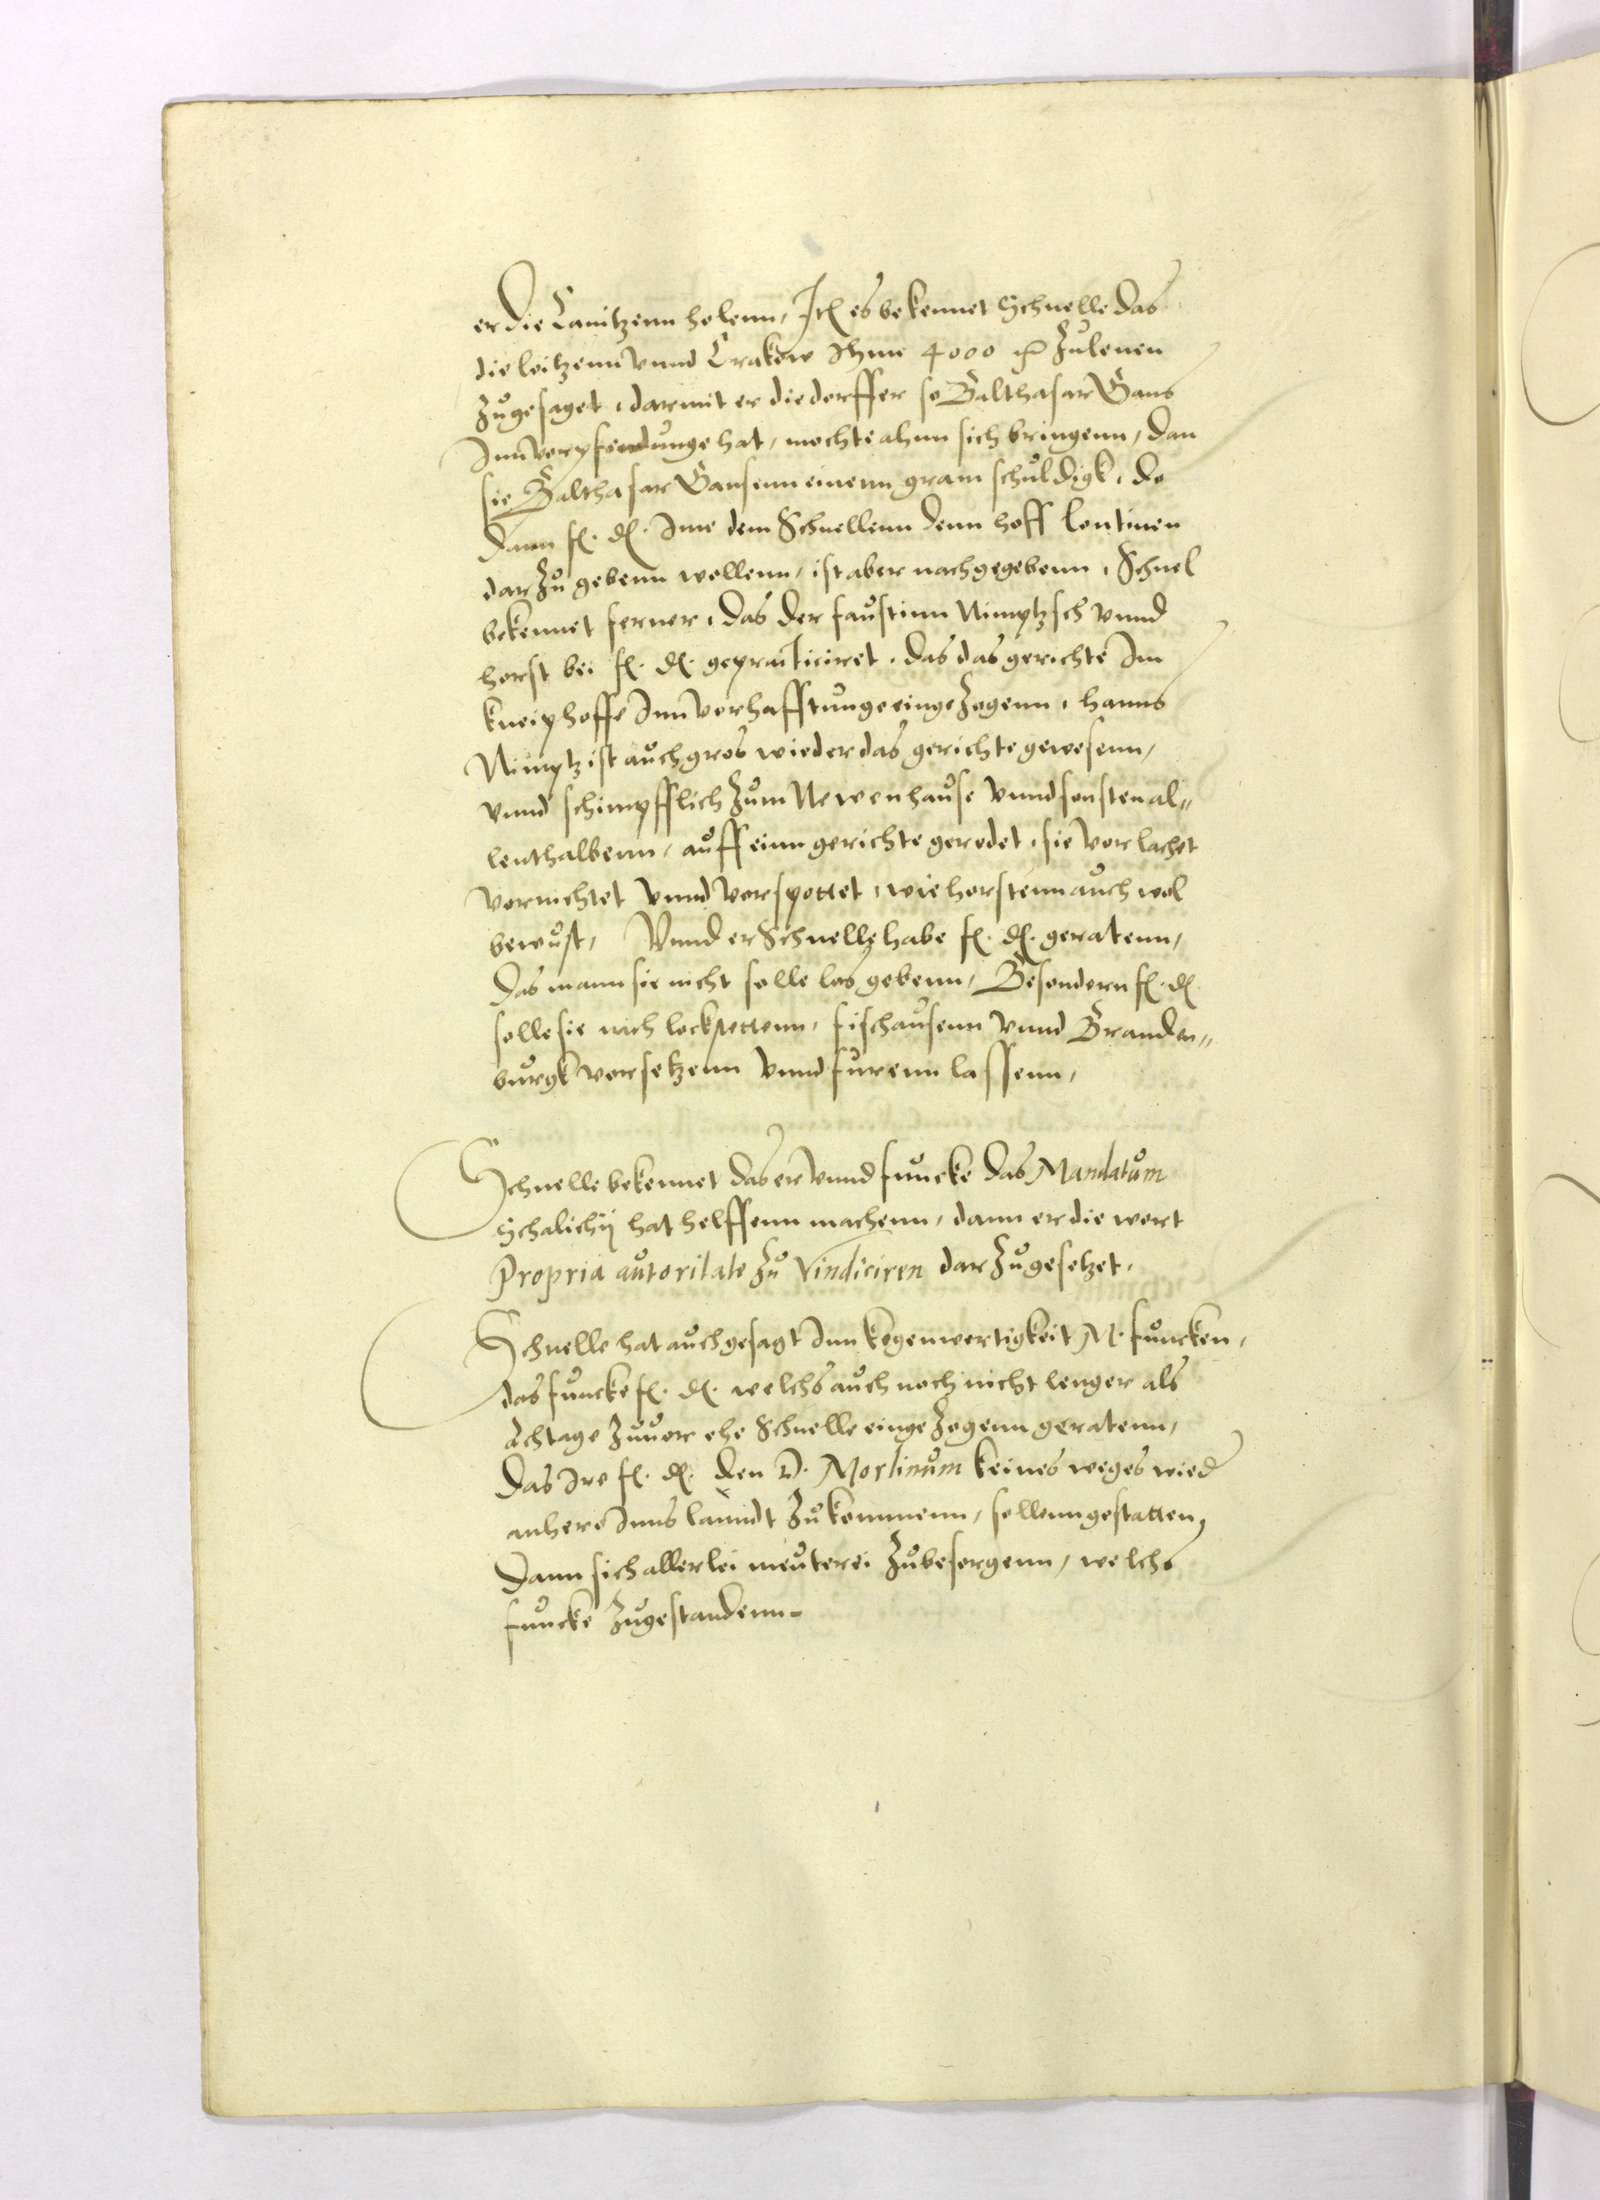 er die Canitzenn holenn, Itẽ es bekennet Schnelle das
die loitzenn vnnd Crakow Ihme 4000 zulenen
zugesaget, darmit er die dorffer so Balthasar Gans
Inn vorpfendunge hat, mochte ahnn sich bringenn, dan
sie Balthasar Gansenn einenn gram schuldigk, do
dann f. d. Ime dem Schnellenn denn hoff lentinen
darzu gebenn wollenn, ist aber nachgegebenn, Schnel
bekennet ferner, das der faustinn Nimptzsch vnnd
horst bei f. d. gepracticiret, das das gerichte Im
kneiphoffe Inn vorhafftunge eingezogenn, hanns
Nimptz ist auch gros wieder das gerichte gewesenn,
vnnd schimpfflich zum Newenhause vnnd sonsten al„
lenthalbenn, auff einn gerichte geredet, sie vorlachet
vornichtet vnnd vorspottet, wie horstenn auch wol
bewust, Vnnd er Schnelle habe f. d. geratenn,
das mann sie nicht solle los gebenn, Besondern f. d.
solle sie nich lockstettenn, fischausenn vnnd Branden„
burgk vorsetzenn vnnd furenn lassenn,
Schnelle bekennet das er vnnd funcke das Mandatum
Schalichij hat helffenn machenn, dann er die wort
Propria autoritate zu Vindiciren darzu gesetzet,
Schnelle hat auch gesagt Inn kegenwertigkeit M. funcken,
das funcke f. d. welchs auch noch nicht lenger als
Achtage zuuor ehe Schnelle eingezogenn geratenn,
das Ire f. d. den D. Morlinum keines weges wied
anhero Inns lanndt zukommenn, sollenn gestatten,
Dann sich allerlei meuterei zubesorgenn, welchs
funcke zugestandenn.